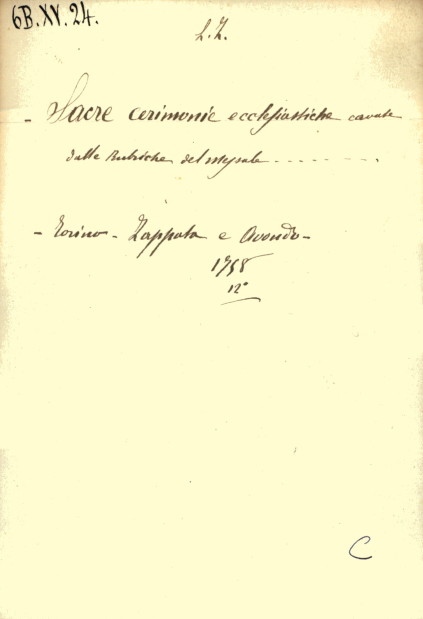 6B.XV.24.
L.Z.
- Sacre cerimonie ecclesiastiche cavate
dalle Rubriche del messale - - - - - - - .
- Torino - Zappata e Avondo -
1758
12°
C